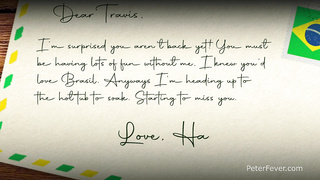 Dear Travis,
I'm surprised you aren't back yet! You must
be having lots of fun without me. I knew you'd
love Brasil. Anyways I'm heading up to
the hot tub to soak. Starting to miss you.
Love, Ha
PeterFever.com